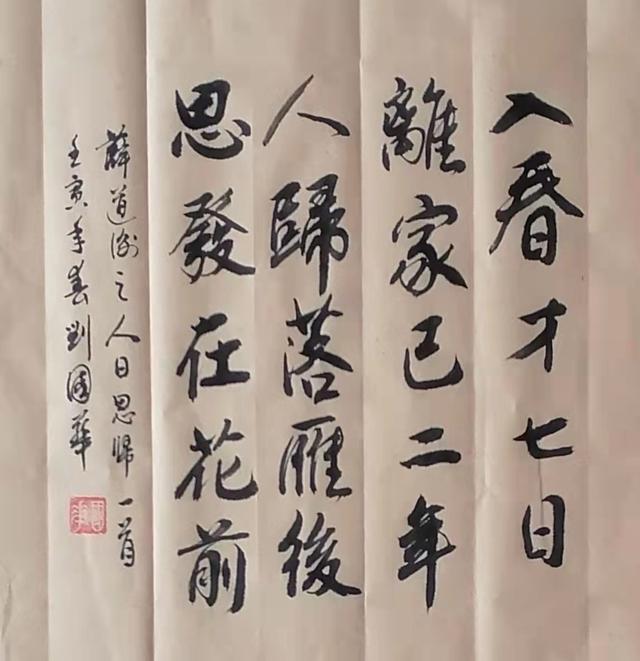 入春才七日
離家已二年
人歸落雁後
思發在花前
薛道衡之人日思歸一首
壬寅年春劉國華